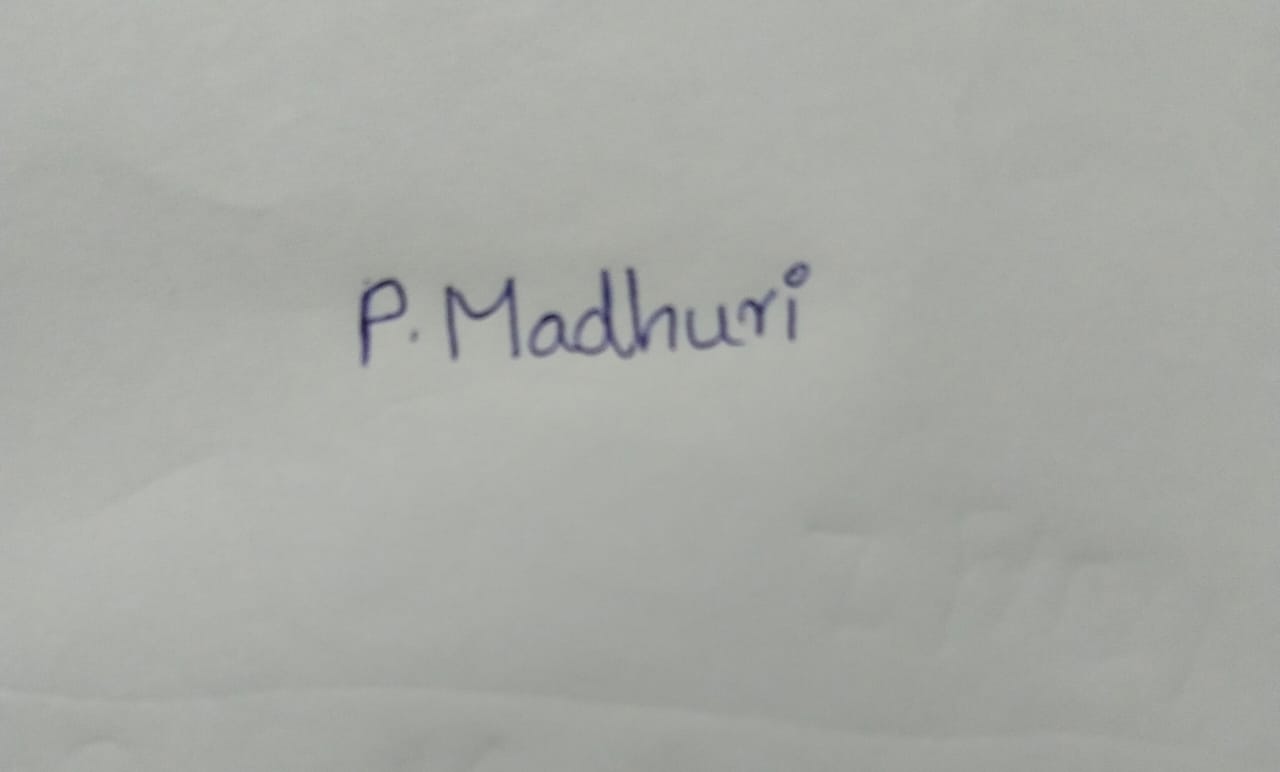 P. Madhuri